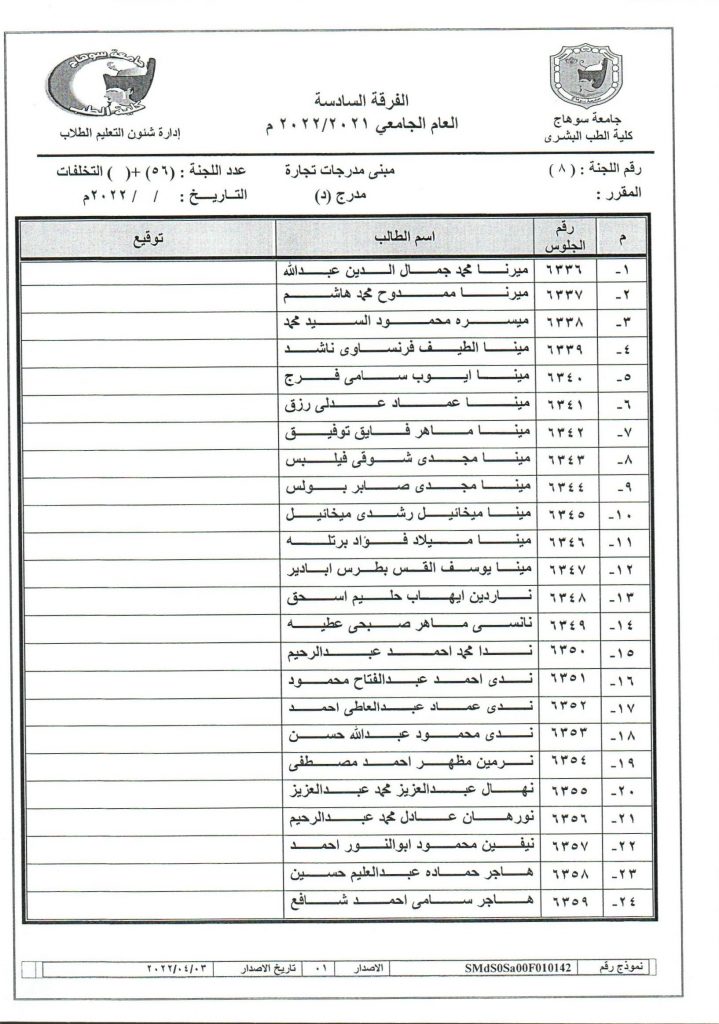 جامعة سوهاج
كلية الطب البشرى
الفرقة السادسة
العام الجامعي ٢٠٢٢/٢٠٢١ م
جامعة سوهاج
كلية الطب
إدارة شئون التعليم الطلاب
رقم اللجنة : ( ٨ )
مبنى مدرجات تجارة
عدد اللجنة : (٥٦) +( ) التخلفات
المقرر :
مدرج (د)
التاريخ : / / ٢٠٢٢م
م رقم الجلوس اسم الطالب توقيع
١- ٦٣٣٦ ميرنا محمد جمال الدين عبدالله
٢- ٦٣٣٧ ميرنا ممدوح محمد هاشم
٣- ٦٣٣٨ ميسره محمود السيد محمد
٤- ٦٣٣٩ مينا الطيف فرنساوى ناشد
٥- ٦٣٤٠ مينا ايوب سامى فرج
٦- ٦٣٤١ مينا عماد عدلى رزق
٧- ٦٣٤٢ مينا ماهر فايق توفيق
٨- ٦٣٤٣ مينا مجدى شوقى فيلبس
٩- ٦٣٤٤ مينا مجدى صابر بولس
١٠- ٦٣٤٥ مينا ميخائيل رشدى ميخائيل
١١- ٦٣٤٦ مينا ميلاد فؤاد برتله
١٢- ٦٣٤٧ مينا يوسف القس بطرس ابادير
١٣- ٦٣٤٨ ناردين ايهاب حليم اسحق
١٤- ٦٣٤٩ نانسى ماهر صبحى عطيه
١٥- ٦٣٥٠ ندا محمد احمد عبدالرحيم
١٦- ٦٣٥١ ندى احمد عبدالفتاح محمود
١٧- ٦٣٥٢ ندى عماد عبدالعاطى احمد
١٨- ٦٣٥٣ ندى محمود عبدالله حسن
١٩- ٦٣٥٤ نرمين مظهر احمد مصطفى
٢٠- ٦٣٥٥ نهال عبدالعزيز محمد عبدالعزيز
٢١- ٦٣٥٦ نورهان عادل محمد عبدالرحيم
٢٢- ٦٣٥٧ نيفين محمود ابوالنور احمد
٢٣- ٦٣٥٨ هاجر حماده عبدالعليم حسين
٢٤- ٦٣٥٩ هاجر سامى احمد شافع
نموذج رقم SMdS0Sa00F010142 الاصدار ٠١ تاريخ الاصدار ٢٠٢٢/٠٤/٠٣